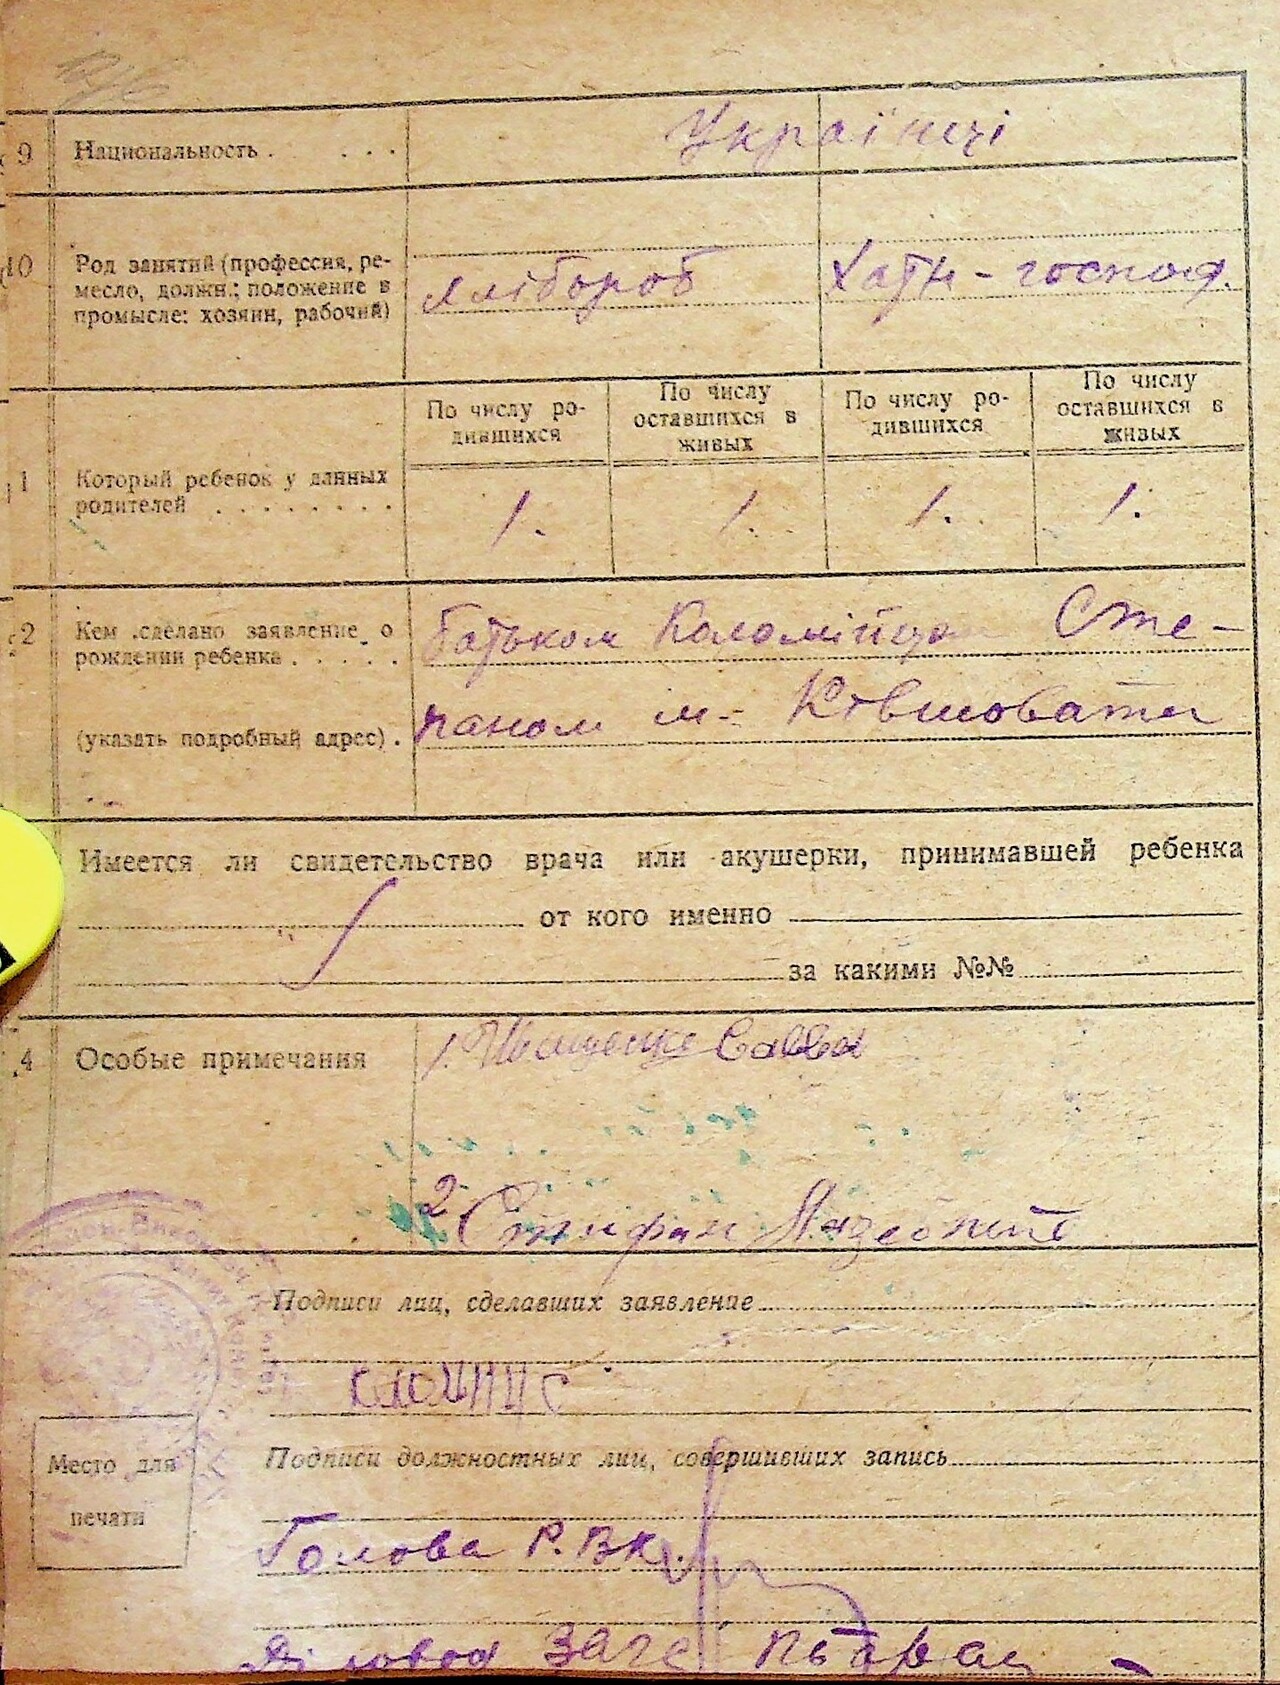 9 Национальность . . . . Українці
10 Род занятий (профессия, ре-
месло, должн.; положение в
промысле: хозяин, рабочий)
хлібороб Хатн - господ.
По числу ро-
дившихся
По числу
оставшихся в
живых
По числу ро-
дившихся
По числу
оставшихся в
живых
1 Который ребенок у данных
родителей . . . . . . . .
1. 1. 1. 1.
2 Кем сделано заявление о
рождении ребенка . . . . .
(указать подробный адрес) .
батьком Коломійцем Сте-
паном м- Ковшовати
Имеется ли свидетельство врача или акушерки, принимавшей ребенка
от кого именно
за какими №№
4 Особые примечания
1. Савва
2 Стифан
Подписи лиц, сделавших заявление
Подписи должностных лиц, совершивших запись
Место для
печати
Голова Р.В.К.
Діловод ЗАГС